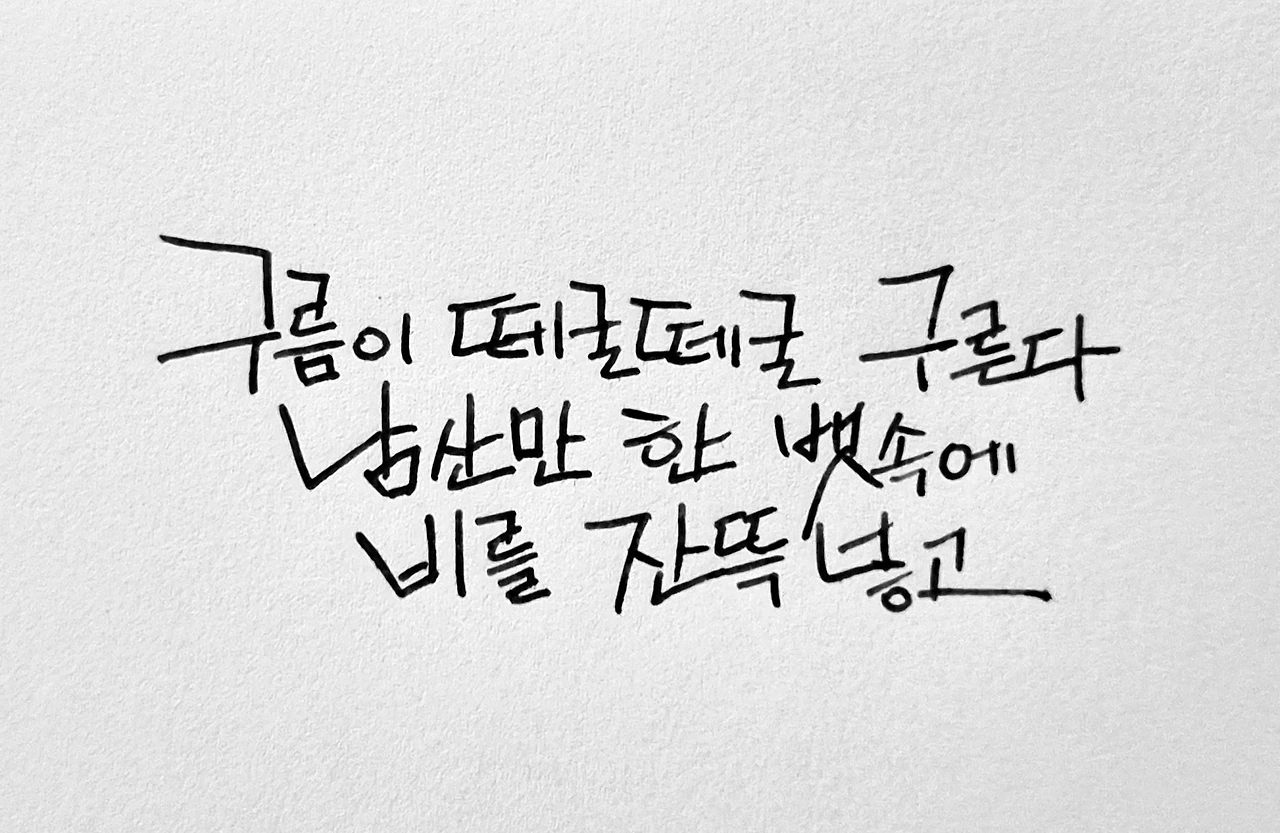 구름이 떼굴떼굴 구른다
남산만 한 뱃속에
비를 잔뜩 넣고